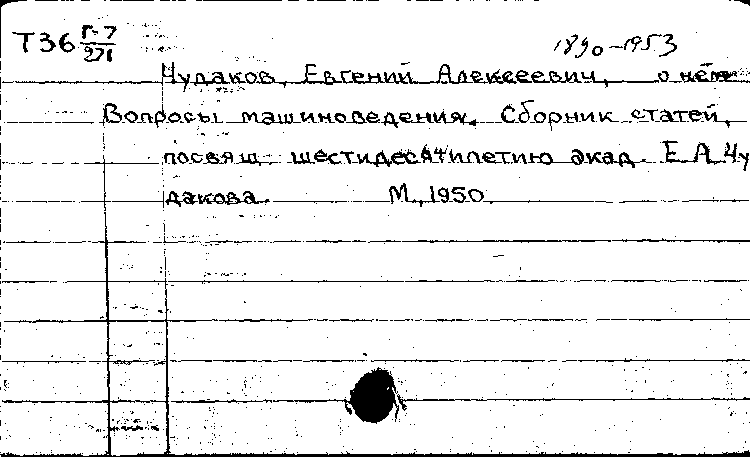 Т36 Г-7/971
1890-1953
Чудаков, Евгений Алексеевич, о нём
Вопросы машиноведения. Сборник статей,
посвящ. шестидесятилетию акад. Е.А.Чу
дакова. М., 1950.